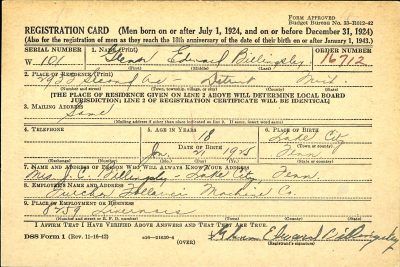 FORM APPROVED
Budget Bureau No. 33-R012-42
REGISTRATION CARD—(Men born on or after July 1, 1924, and on or before December 31, 1924)
(Also for the registration of men as they reach the 18th anniversary of the date of their birth on or after January 1, 1943.)
SERIAL NUMBER
1. NAME (Print)
ORDER NUMBER
W 101
Edward Billingsley
16712
(First) (Middle) (Last)
2. PLACE OF RESIDENCE (Print)
Second Detroit Mich.
(Number and street) (Town, township, village, or city) (County) (State)
[THE PLACE OF RESIDENCE GIVEN ON LINE 2 ABOVE WILL DETERMINE LOCAL BOARD
JURISDICTION; LINE 2 OF REGISTRATION CERTIFICATE WILL BE IDENTICAL]
3. MAILING ADDRESS
Same
(Mailing address if other than place indicated on line 2. If same, insert word same)
4. TELEPHONE
5. AGE IN YEARS
18
6. PLACE OF BIRTH
Lake City
DATE OF BIRTH
(Town or county)
Jan. 21 1925
Tenn
(Exchange) (Number) (Mo.) (Day) (Yr.) (State or country)
7. NAME AND ADDRESS OF PERSON WHO WILL ALWAYS KNOW YOUR ADDRESS
Mrs. Billingsley - Lake City, Tenn.
8. EMPLOYER'S NAME AND ADDRESS
Machine Co
9. PLACE OF EMPLOYMENT OR BUSINESS
8759 Livernois
(Number and street or R. F. D. number) (Town) (County) (State)
I AFFIRM THAT I HAVE VERIFIED ABOVE ANSWERS AND THAT THEY ARE TRUE.
DSS Form 1 (Rev. 11-16-42)
(OVER)
Edward Billingsley
(Registrant's signature)